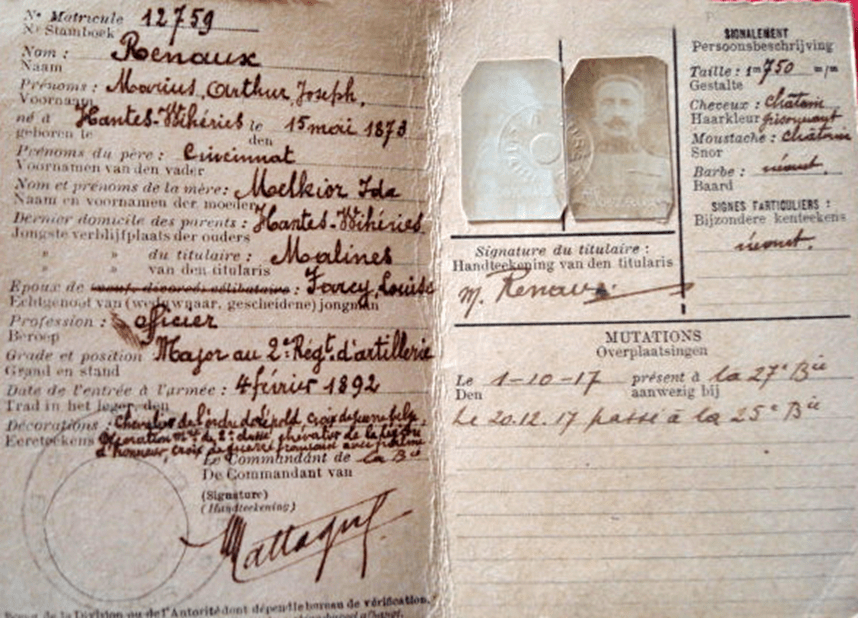 Nº Matricule 12759
Nr Stamboek
Nom : Renaux
Naam
Prénoms : Marius, Arthur, Joseph,
Voornaam
né à Hantes-Wihéries le 15 mai 1873
geboren te den
Prénoms du père : Cincinnat
Voornamen van den vader
Nom et prénoms de la mère: Melkior Ida
Naam en voornamen der moeder
Dernier domicile des parents : Hantes-Wihéries
Jongste verblijfplaats der ouders
» » du titulaire : Malines
» » van den titularis
Epoux de veuf, divorcé, célibataire : Farcy, Louise
Echtgenoot van (weduwnaar, gescheidene) jongman
Profession : officier
Beroep
Grade et position Major au 2e Régt. d'artillerie
Graad en stand
Date de l'entrée à l'armée : 4 février 1892
Trad in het leger den
Décorations : Chevalier de l'ordre de Léopold, croix de guerre belge,
Eereteekens Décoration mre de 2e classe, chevalier de la légion
d'honneur, croix de guerre française avec palme
Le Commandant de la Bie
De Commandant van
(Signature)
(Handteekening)
Mattagne
de la Division ou de l'Autorité dont dépend le bureau de vérification.
SIGNALEMENT
Persoonsbeschrijving
Taille : 1m 750 m/m
Gestalte
Cheveux : châtain
Haarkleur grisonnant
Moustache : châtain
Snor
Barbe : néant.
Baard
SIGNES PARTICULIERS :
Bijzondere kenteekens
néant.
Signature du titulaire :
Handteekening van den titularis
M. Renaux
MUTATIONS
Overplaatsingen
Le 1-10-17 présent à la 27e Bie
Den aanwezig bij
Le 20.12.17 passé à la 25e Bie